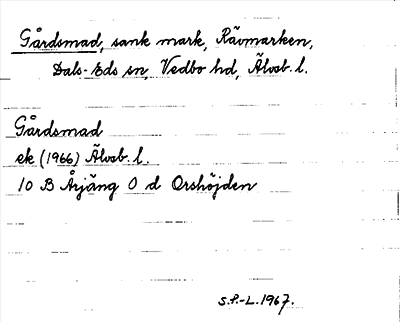 Gårdsmad, sank mark, Rävmarken,
Dals-Eds sn, Vedbo hd, Älvsb. l.
Gårdsmad
ek (1966) Älvsb. l.
10 B Årjäng O d Orshöjden
S.P.-L. 1967.